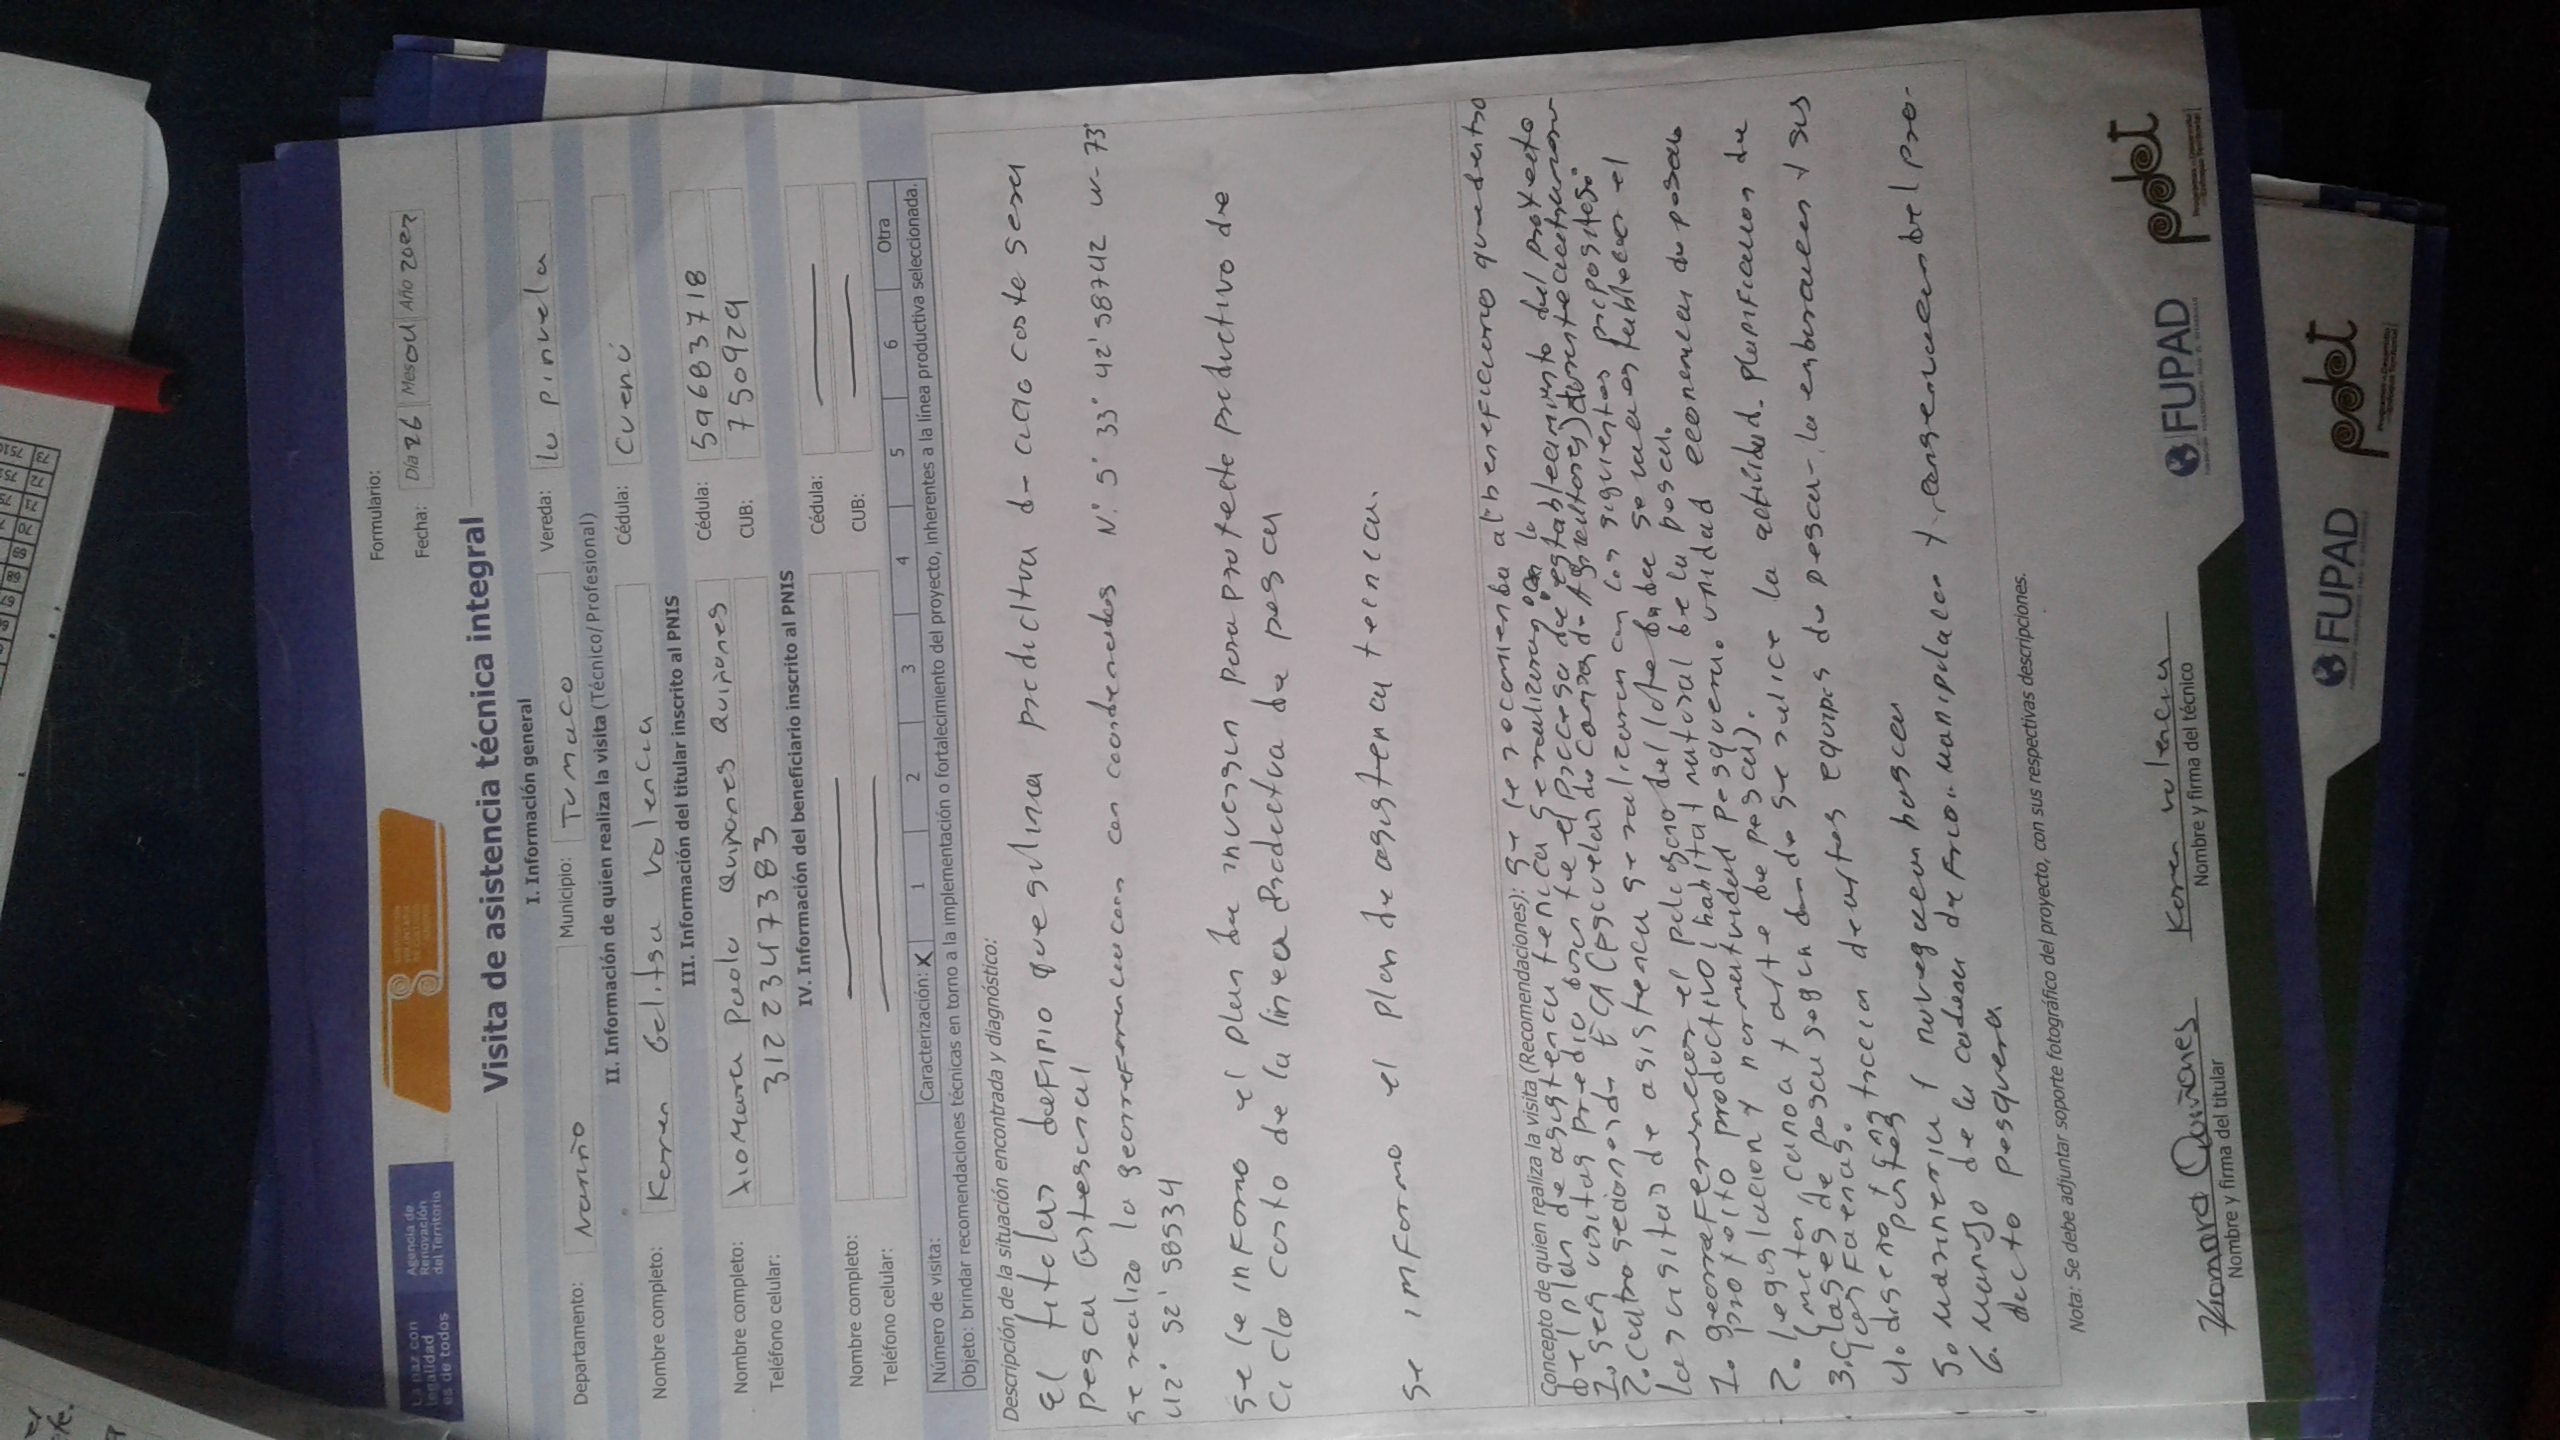 La paz con
legalidad
es de todos
Agencia de
Renovación
del Territorio
Formulario:
Fecha: Día 26 Mes 04 Año 2021
Visita de asistencia técnica integral
I. Información general
Departamento: Nariño Municipio: Tumaco Vereda: la pinuela
II. Información de quien realiza la visita (Técnico/Profesional)
Nombre completo: Karen Gelitsa valencia Cédula:
III. Información del titular inscrito al PNIS
Nombre completo: Xiomara Paola Quiñones Quiñones Cédula: 59683718
Teléfono celular: 3122347383 CUB: 750929
IV. Información del beneficiario inscrito al PNIS
Nombre completo: Cédula:
Teléfono celular: CUB:
Número de visita: Caracterización: X 1 2 3 4 5 6 Otra
Objeto: brindar recomendaciones técnicas en torno a la implementación o fortalecimiento del proyecto, inherentes a la línea productiva seleccionada.
Descripción de la situación encontrada y diagnóstico:
El titular definio que su linea productiva de ciclo corto sera
pesca artesanal
se realizo la georreferenciacion con coordenadas N. 5° 33° 42' 58742 w-73°
42° 52' 58534
se le informo el plan de inversion para proyecto productivo de
ciclo corto de la linea productiva de pesca
se informo el plan de asistencia tecnica.
Concepto de quien realiza la visita (Recomendaciones): se le recomienda al beneficiario que dentro
del plan de asistencia tecnica se realizaran
1. seis visitas predio durante el proceso de establecimiento del proyecto
2. cuatro seciones de ECA (escuelas de campo de Agricultores)
las visitas de asistencia se realizaran con los siguientes propositos:
1. georreferenciar el poligono del lote donde se va a establecer el
proyecto productivo, habitat natural de la pesca.
2. legislacion y normatividad pesquera. unidad economica de pesca
(motor, canoa y arte de pesca).
3. clases de pesca segun donde se realice la actividad. planificacion de
las faenas.
4. diseño y construccion de artes y equipos de pesca- la embarcacion y sus
partes
5. marineria y navegacion basica
6. manejo de la cadena de frio.. manipulacion y conservacion del pro-
ducto pesquera
Nota: Se debe adjuntar soporte fotográfico del proyecto, con sus respectivas descripciones.
Xiomara Quiñones Karen valencia
Nombre y firma del titular Nombre y firma del técnico
FUPAD
pdet
FUPAD
pdet